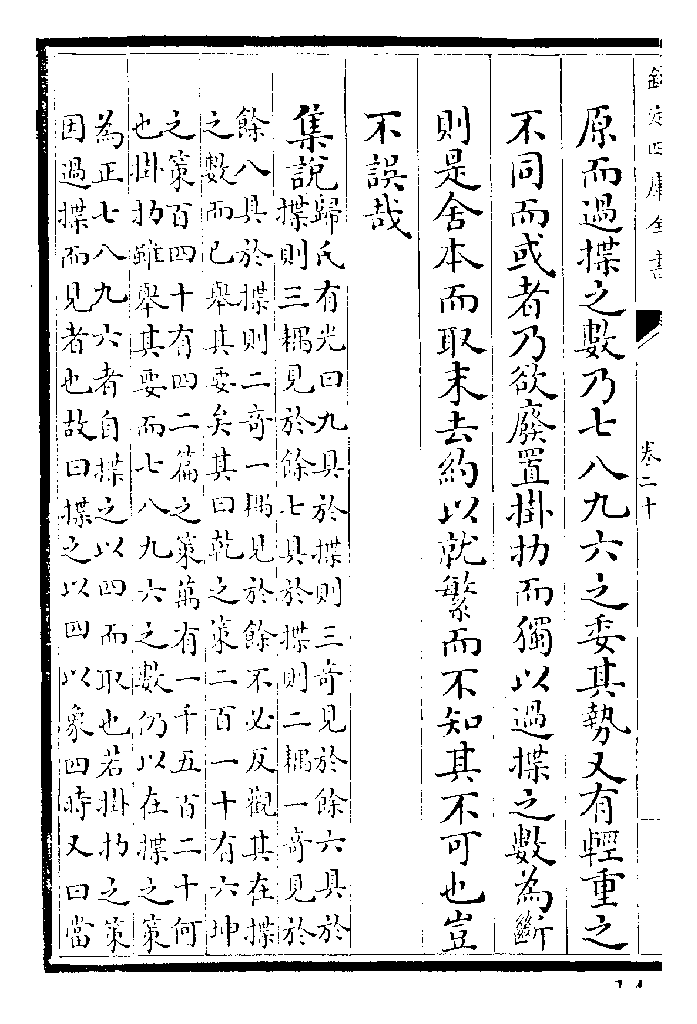 欽定四庫全書
卷二十
原而過揲之數乃七八九六之委其勢又有輕重之
不同而或者乃欲廢置掛扐而獨以過揲之數為斷
則是舍本而取末去約以就繁而不知其不可也豈
不誤哉
集說歸氏有光曰九具於揲則三奇見於餘六具於
揲則三耦見於餘七具於揲則二耦一奇見於
餘八具於揲則二奇一耦見於餘不必反觀其在揲
之數而已舉其要矣其曰乾之策二百一十有六坤
之策百四十有四二篇之策萬有一千五百二十何
也掛扐雖舉其要而七八九六之數仍以在揲之策
為正七八九六者自揲之以四而取也若掛扐之策
因過揲而見者也故曰揲之以四以象四時又曰當